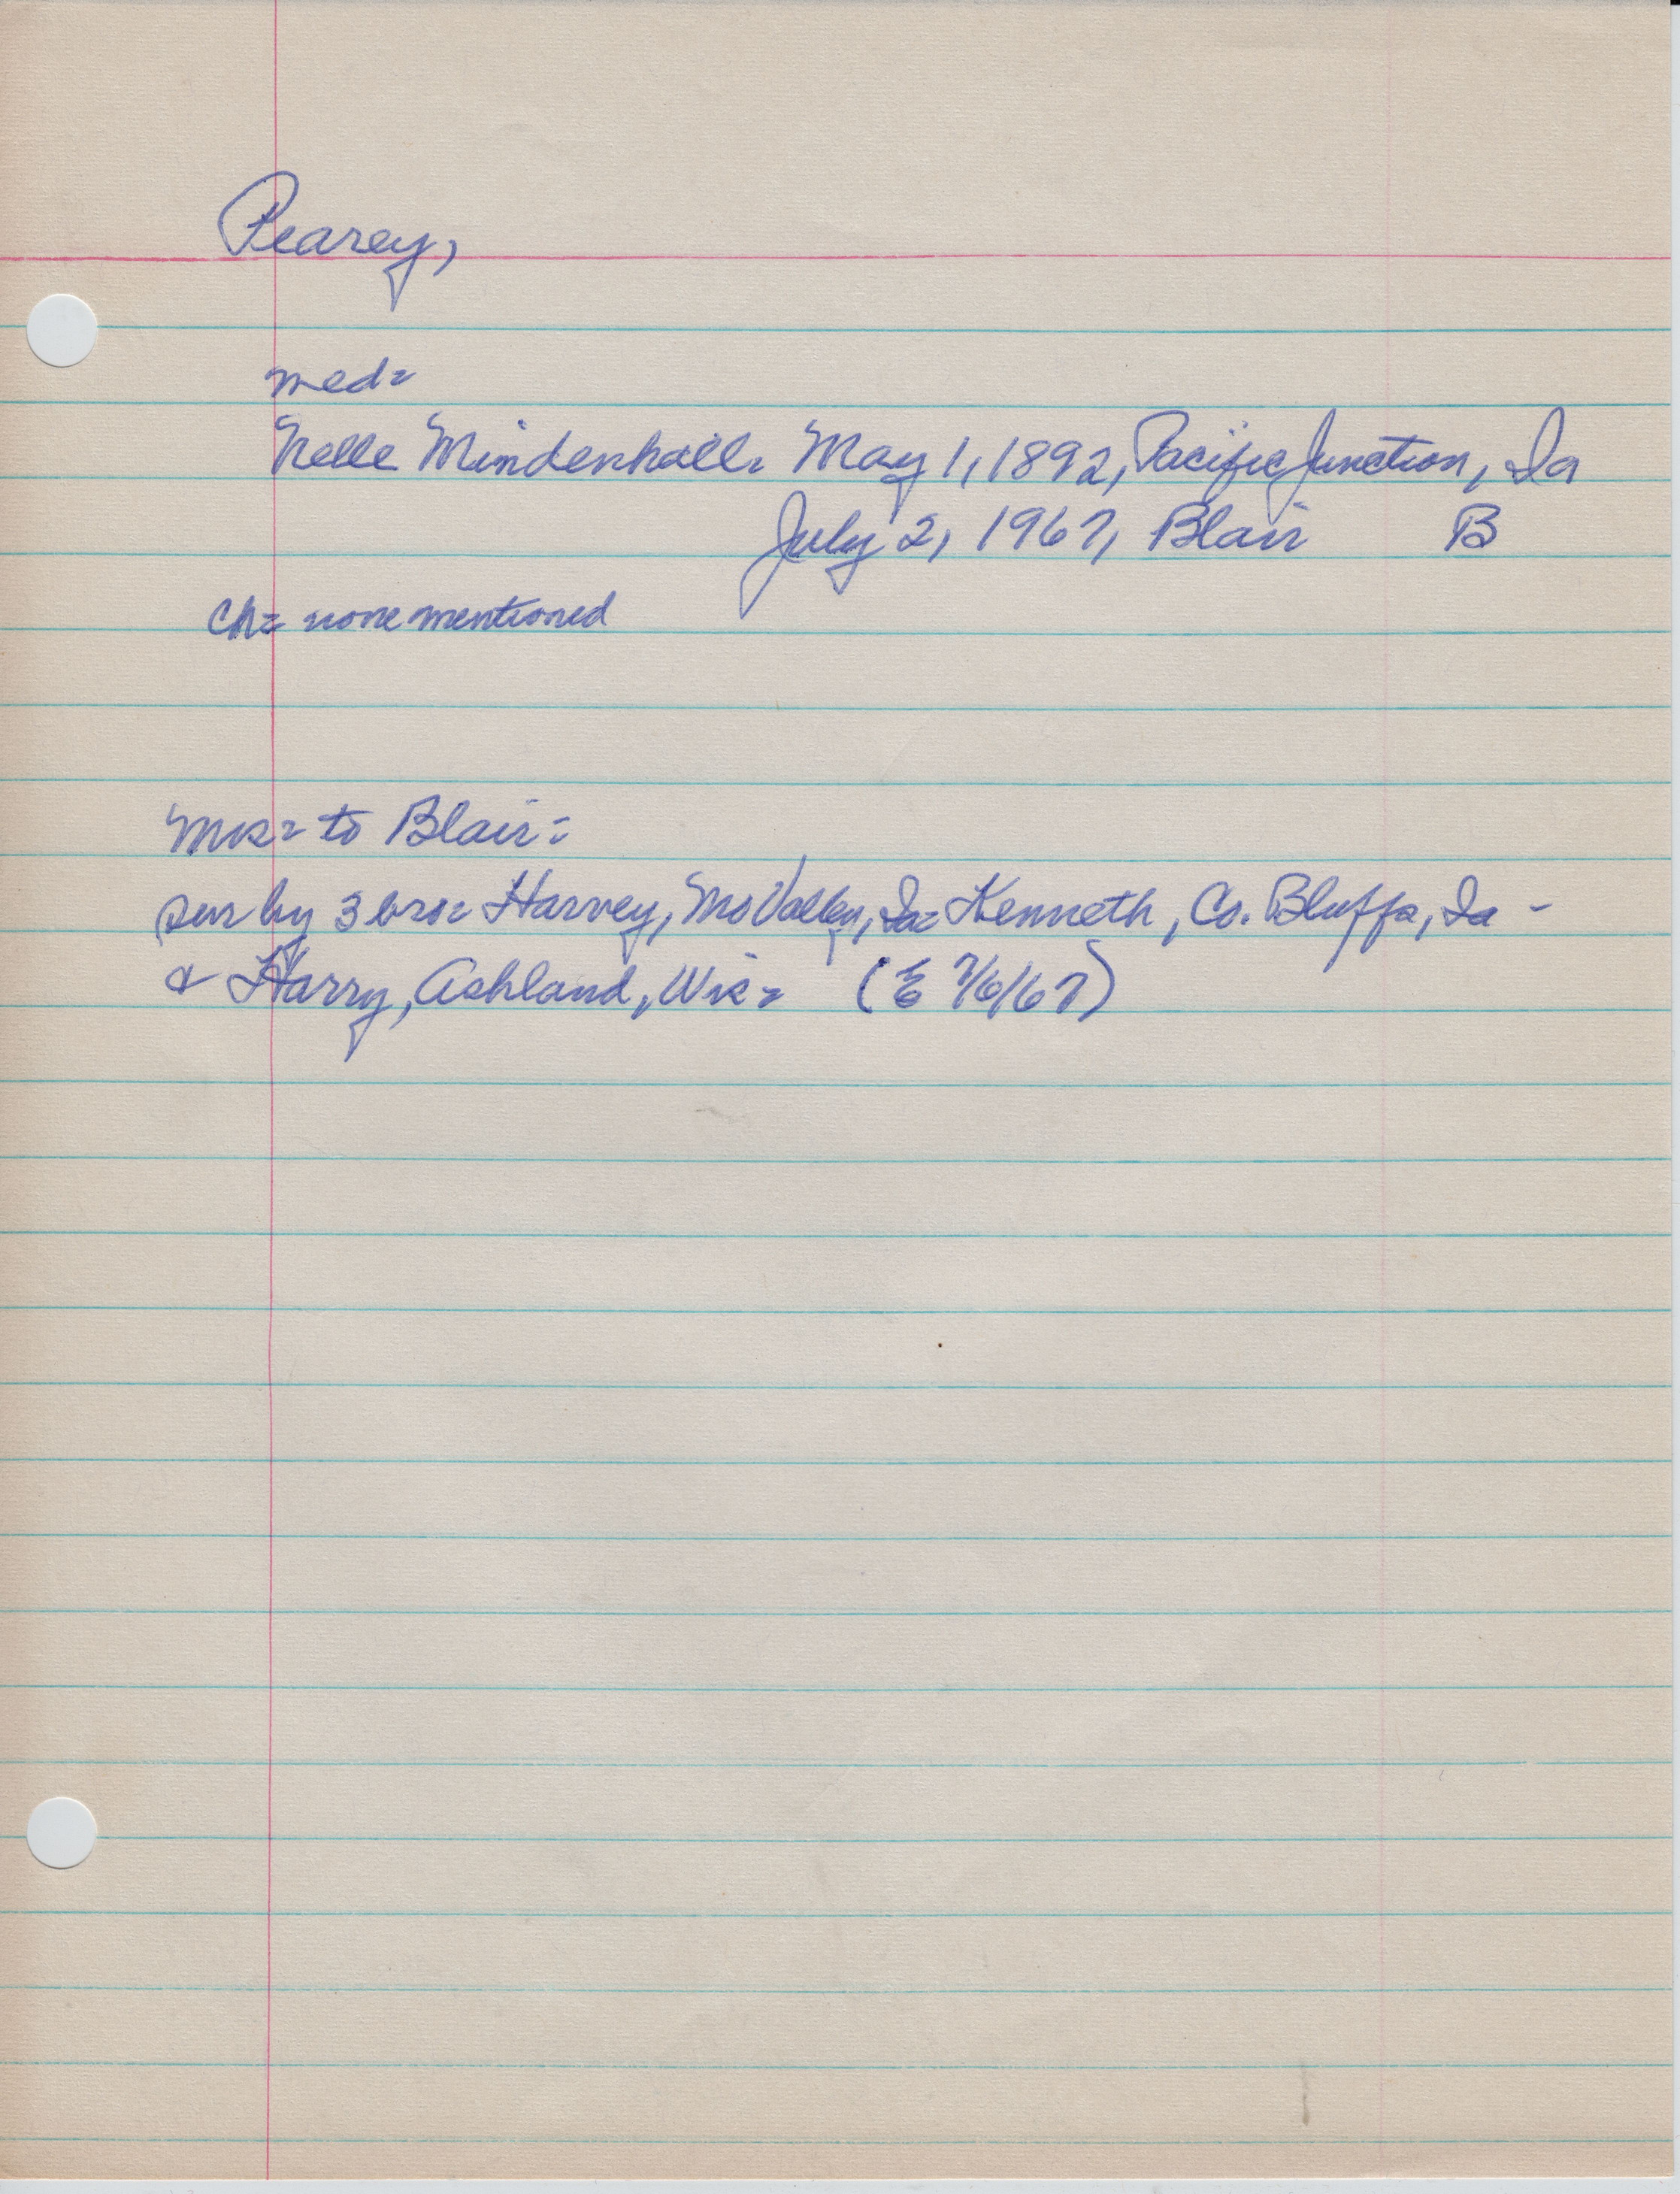 Pearey,
med=
Nelle Mindenhall= May 1, 1892, Pacific Junction, Ia
July 2, 1967, Blair B
Ch= none mentioned
to Blair=
sur by 3 bro= Harvey, Mo Valley, Ia= Kenneth, Co. Bluffs, Ia -
& Harry, Ashland, Wis= (E 7/6/67)